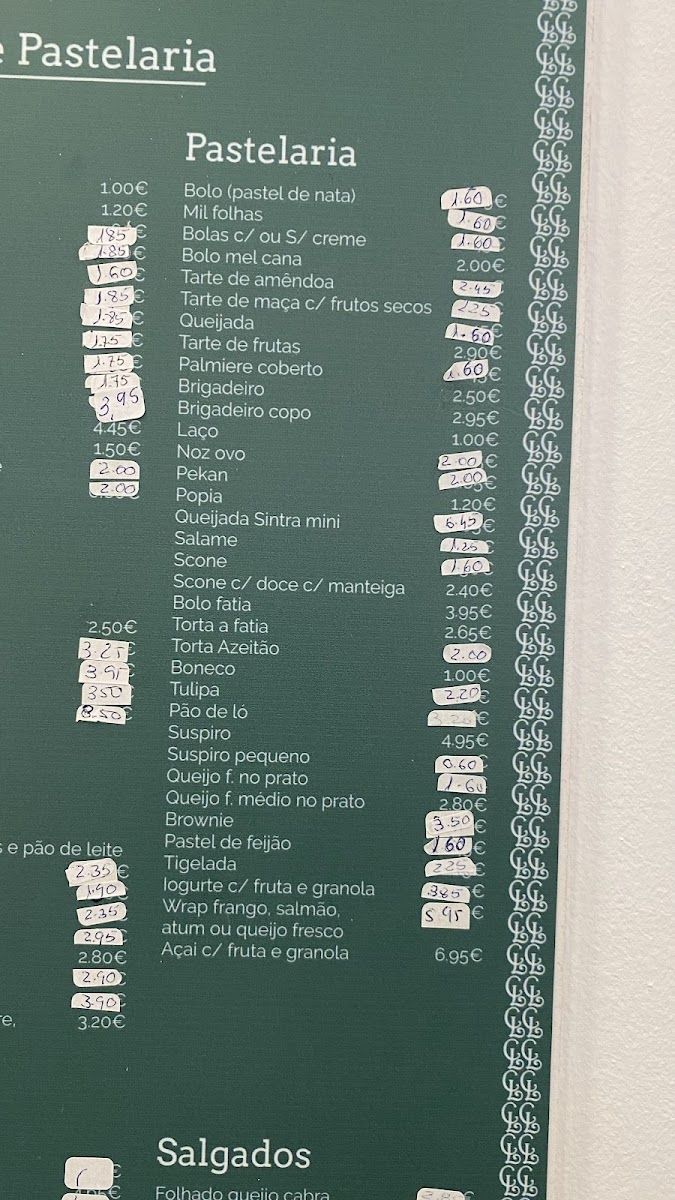 e Pastelaria
1.00€
1.20€
1.85€
1.85€
1.60€
1.85€
1.85€
1.75€
1.75€
1.75
3,95
4.45€
1.50€
2.00
2.00
2.50€
3.25
3.95€
350
8.50€
s e pão de leite
2.35€
1.90
2.35
2.95
2.80€
2.90
3.90
re,
3.20€
Pastelaria
Bolo (pastel de nata) 1.60€
Mil folhas 1.60€
Bolas c/ ou S/ creme 1.60€
Bolo mel cana 2.00€
Tarte de amêndoa 2.45
Tarte de maça c/ frutos secos 225
Queijada 1.60
Tarte de frutas 2.90€
Palmiere coberto 1.60€
Brigadeiro 2.50€
Brigadeiro copo 2.95€
Laço 1.00€
Noz ovo 2.00€
Pekan 2.00€
Popia 1.20€
Queijada Sintra mini 6.45€
Salame 1.25
Scone 1.60
Scone c/ doce c/ manteiga 2.40€
Bolo fatia 3.95€
Torta a fatia 2.65€
Torta Azeitão 2.00
Boneco 1.00€
Tulipa 2.20€
Pão de ló 3.20€
Suspiro 4.95€
Suspiro pequeno 0.60
Queijo f. no prato 1-60
Queijo f. médio no prato 2.80€
Brownie 3.50€
Pastel de feijão 160€
Tigelada 225€
Iogurte c/ fruta e granola 385€
Wrap frango, salmão, 5.95€
atum ou queijo fresco
Açai c/ fruta e granola 6.95€
Salgados
Folhado queijo cabra